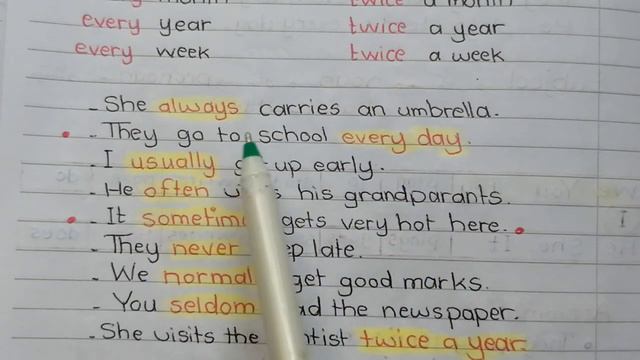 every year twice a year
every week twice a week
- She always carries an umbrella.
- They go to school every day.
- I usually up early.
- He often his grandparants.
- It gets very hot here.
- They never late.
- We get good marks.
- You seldom the newspaper.
- She visits the twice a year.